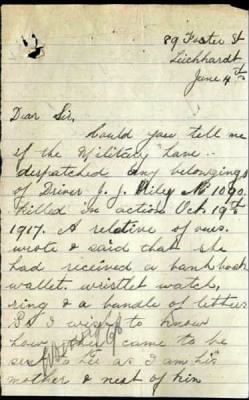 89 Foster St
Leichhardt
June 4th
Dear Sir,
Could you tell me
if the Military have
despatched any belongings
of Driver J. J. Riley No 1090
killed in action Oct. 19th
1917. A relative of ours
wrote & said that she
had received a bank book
wallet, wristlet watch,
ring & a bundle of letters
So I wish to know
how they came to be
sent to as I am his
mother & next of kin